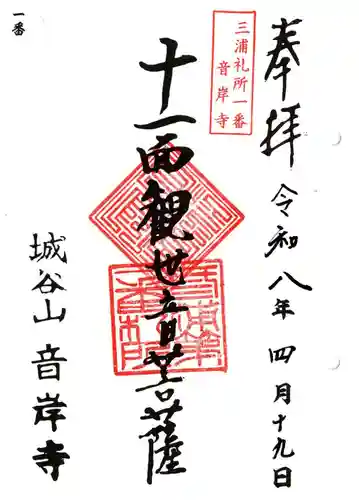 奉拝
令和八年 四月十九日
三浦礼所一番
音岸寺
十一面観世音菩薩
城谷山 音岸寺
一番